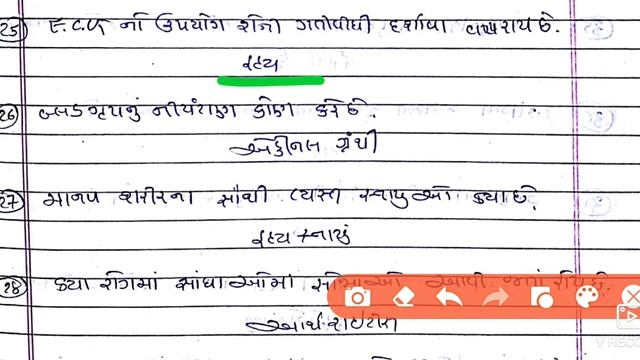 25) E.C.G નો ઉપયોગ શેની ગતીવીધી દર્શાવા વપરાય છે.
હૃદય
26) બ્લડગ્રુપનું નીયંત્રણ કોણ કરે છે.
એડ્રીનલ ગ્રંથી
27) માનવ શરીરના સૌથી વ્યસ્ત સ્નાયુઓ ક્યા છે.
હૃદય સ્નાયું
28) ક્યા રોગમાં સાંધાઓમાં
આર્થરાઈટીસ